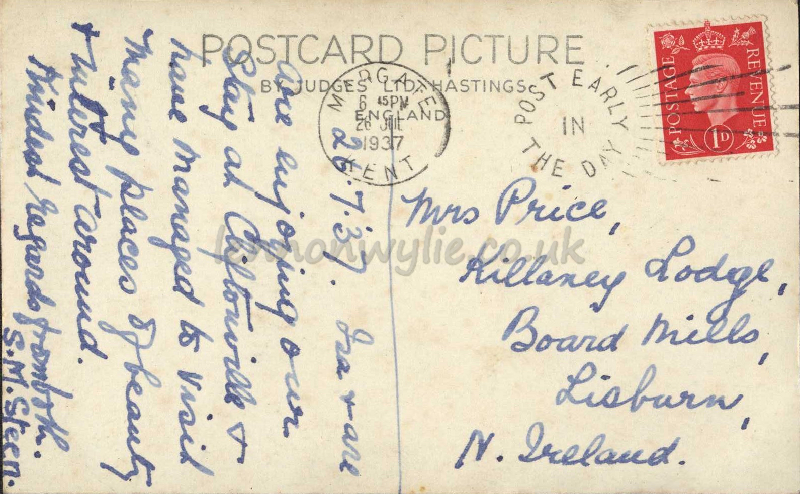 POSTCARD PICTURE
BY JUDGES LTD HASTINGS
ENGLAND
MARGATE
6 45PM
26 JUL
1937
KENT
POST EARLY
IN
THE DAY
POSTAGE
REVENUE
1D
26.7.37. Ina & are
are enjoying our
stay at Cliftonville &
have managed to visit
many places of beauty
& interest around.
Kindest regards from both.
S.M. Steen.
Mrs Price,
Killaney Lodge,
Board Mills,
Lisburn,
N. Ireland.
lennonwylie.co.uk